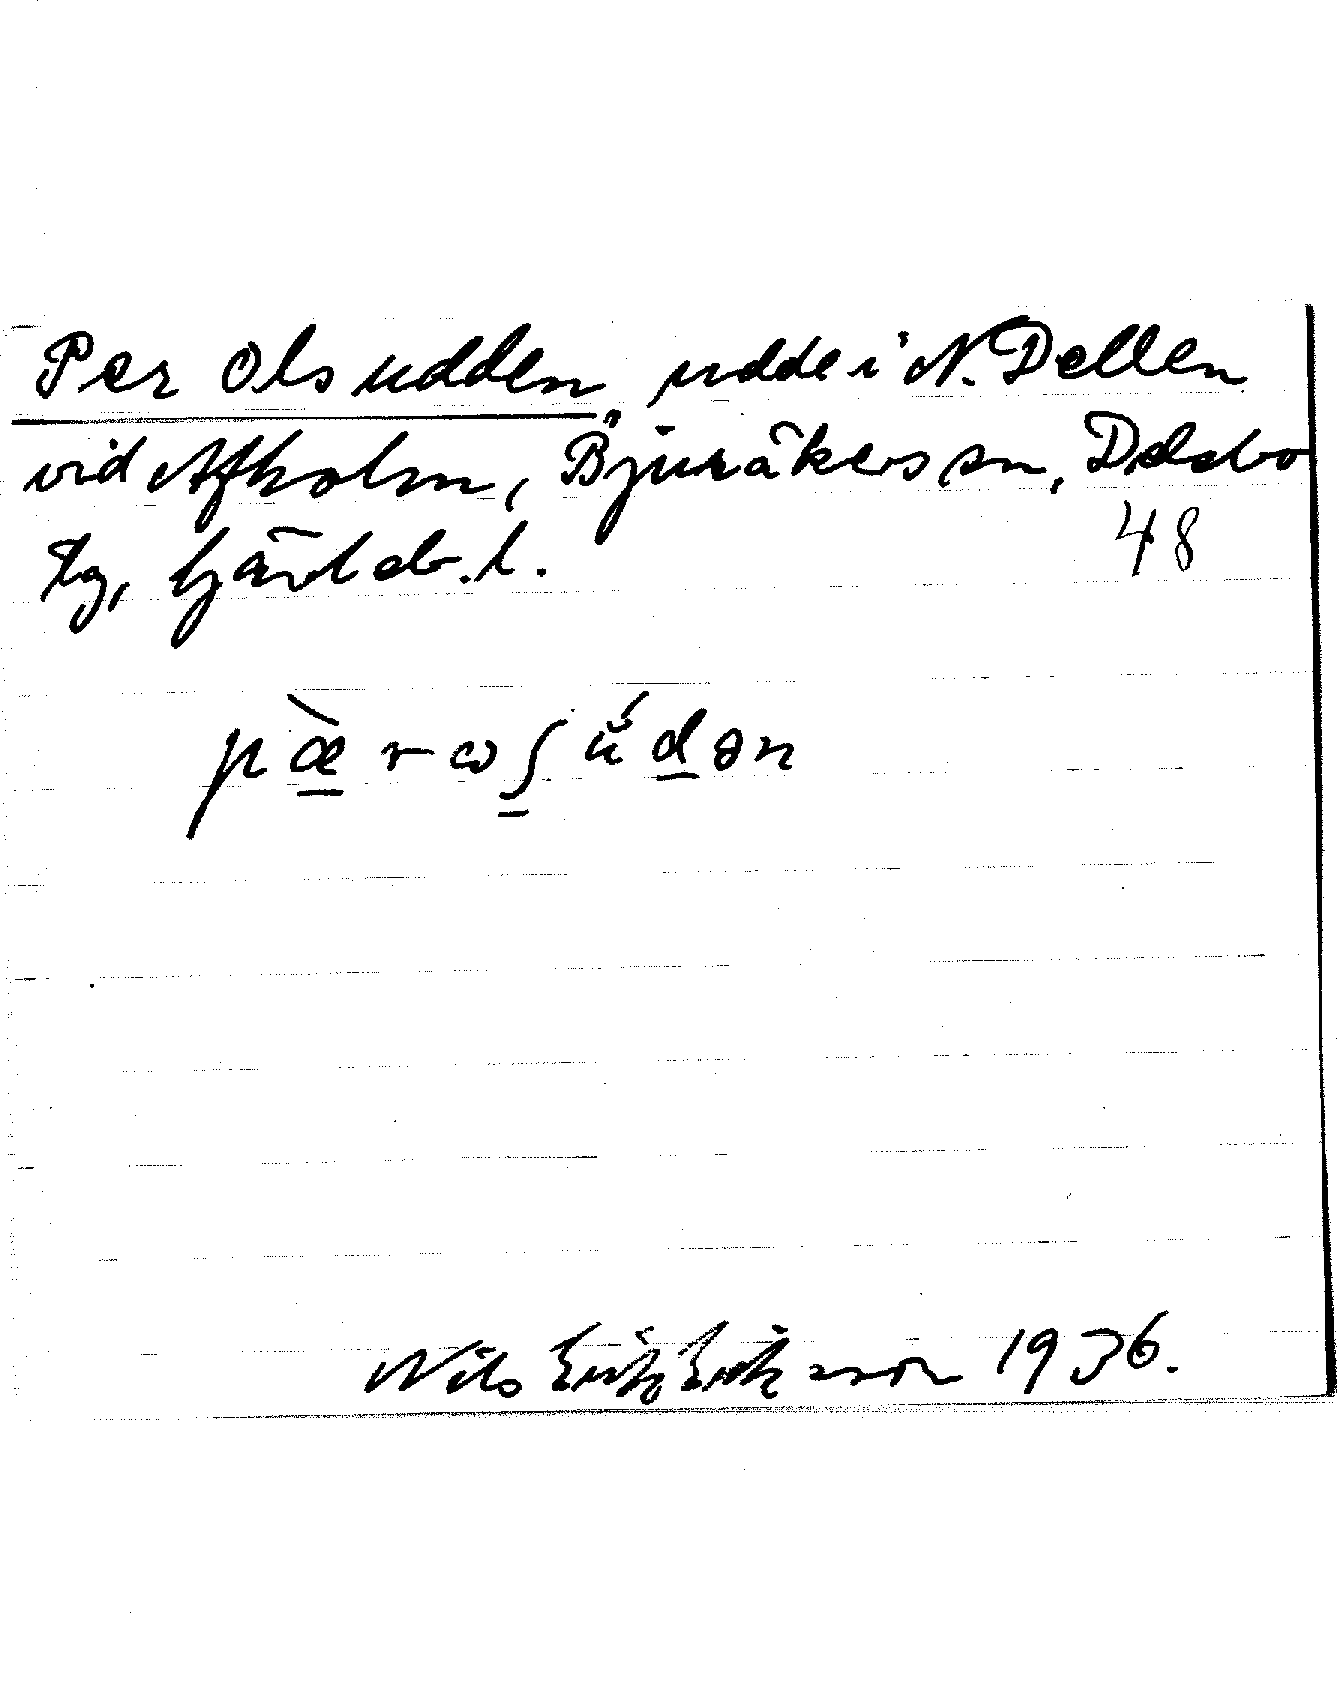 Per Olsudden, udde i N. Dellen
vid Afholm, Bjuråkers sn, Delsbo
tg, Gävleb. l.
48
pæ̀rωʃŭ́dən
Nils Erik Eriksson 1936.